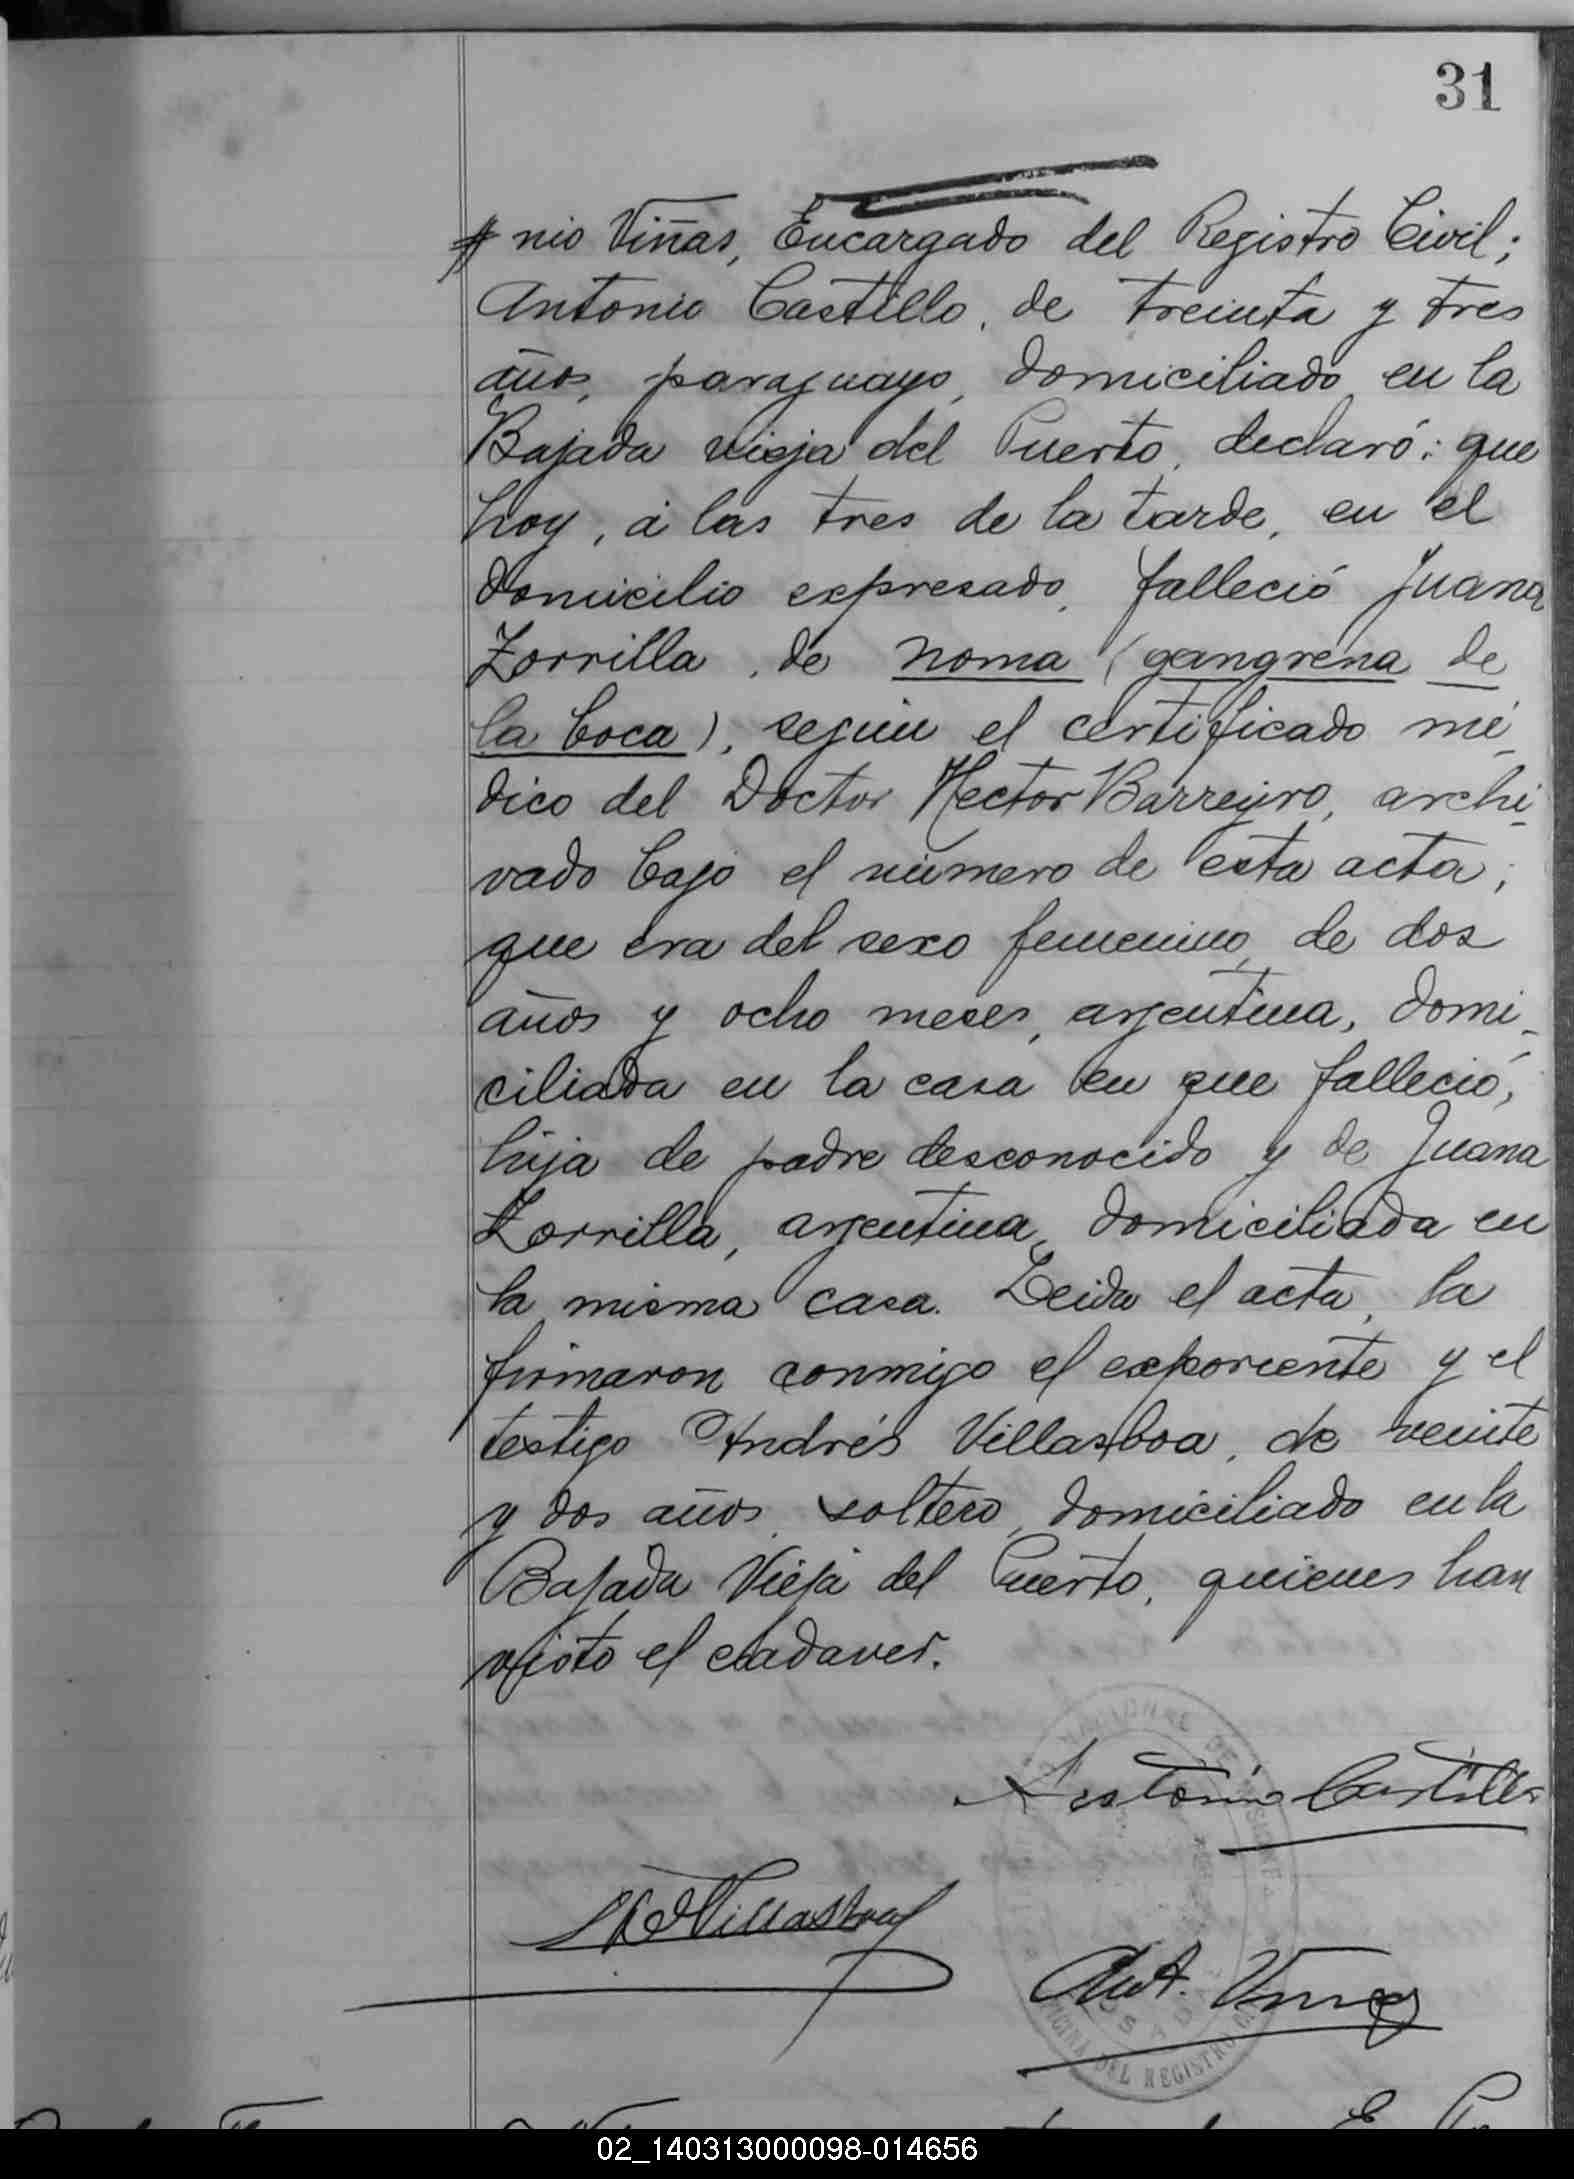 31
nio Viñas, Encargado del Registro Civil;
Antonio Castillo, de treinta y tres
años, paraguayo, domiciliado en la
Bajada vieja del Puerto, declaró: que
hoy, á las tres de la tarde, en el
domicilio expresado, falleció Juana
Zorrilla, de noma (gangrena de
la boca), según el certificado mé
dico del Doctor Hector Barreyro, archi
vado bajo el número de esta acta;
que era del sexo femenino, de dos
años y ocho meses, argentina, domi-
ciliada en la casa en que falleció,
hija de padre desconocido y de Juana
Zorrilla, argentina, domiciliada en
la misma casa. Leida el acta, la
firmaron conmigo el exponente y el
testigo Andrés Villasboa, de veinte
y dos años, soltero, domiciliado en la
Bajada Vieja del Puerto, quienes han
visto el cadaver.
Castillo
Villasboa
Ant. Viñas
NACIONAL DE MISIONES
POSADAS
OFICINA DEL REGISTRO CIVIL
02_140313000098-014656